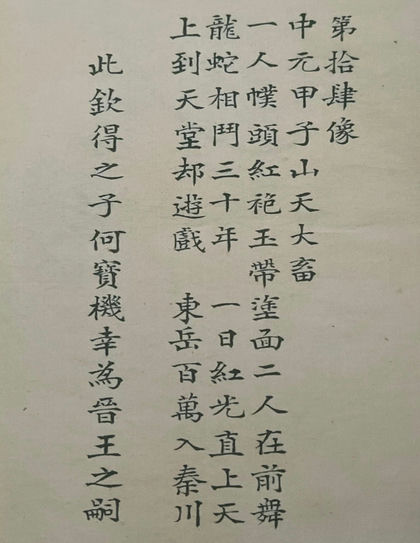 第拾肆像
中元甲子山天大畜
一人幞頭紅袍玉帶塗面二人在前舞
龍蛇相鬥三十年　一日紅光直上天
上到天堂却遊戲　東岳百萬入秦川
此欽得之子何寶機幸為晉王之嗣